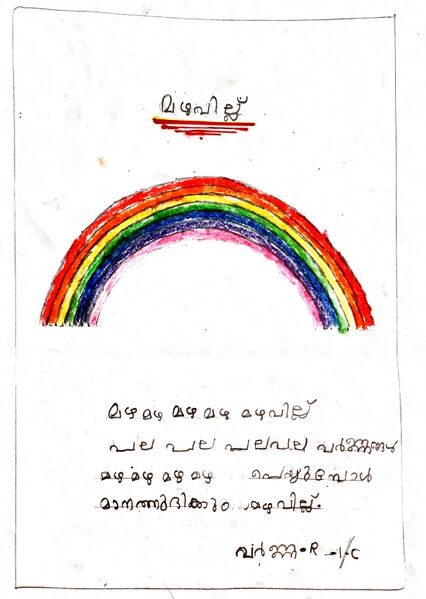 മഴവില്ല്
മഴ മഴ മഴ മഴ മഴവില്ല്
പല പല പലപല വർണ്ണങ്ങൾ
മഴ മഴ മഴ മഴ പെയ്യുമ്പോൾ
മാനത്തുദിക്കും മഴവില്ല്.
വർണ്ണ.R - 1/C